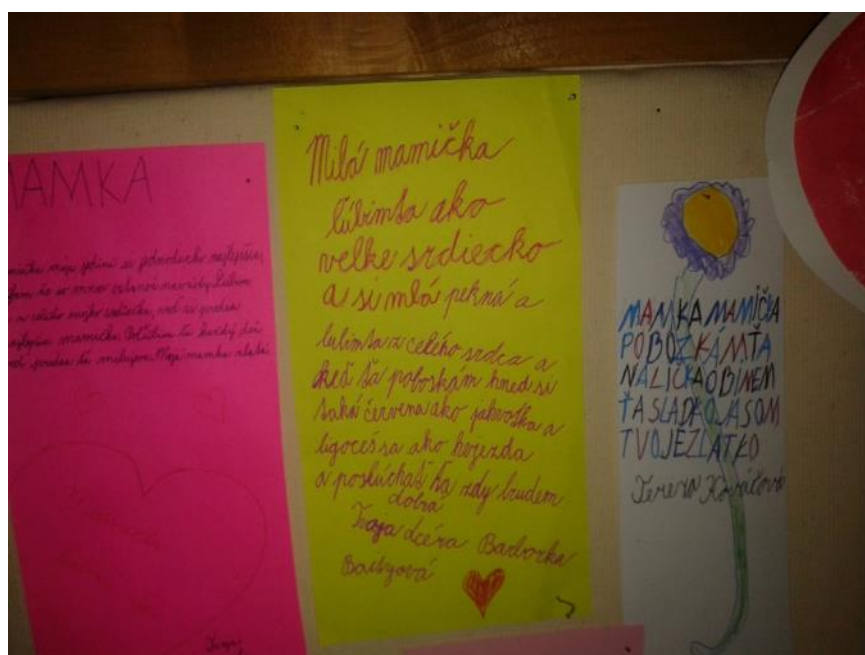 MAMKA
mamička moja jediná si jednoducho najlepšia,
ľúbim ťa
a celého mojho srdiečka, veď si predsa
najlepšia mamička. Poľúbim ťa každý deň
predsa ťa milujem. Moja mamka zlatá.
Milá mamička
ľúbimťa ako
velke srdiecko
a si mlá pekná a
lubimťa z celého srdca a
keď ťa poboskám hneď si
taká červena ako jahvoťka a
ligoceš sa ako hvjezda
a poslúchať ťa vždy budem
dobra
Tvoja dcéra Barborka
MAMKA MAMIČKA
POBOZKÁMŤA
NA LÍČKA OBIMEM
ŤA SLADKO JA SOM
TVOJE ZLATKO
Tereza Kováčová
Tvoja